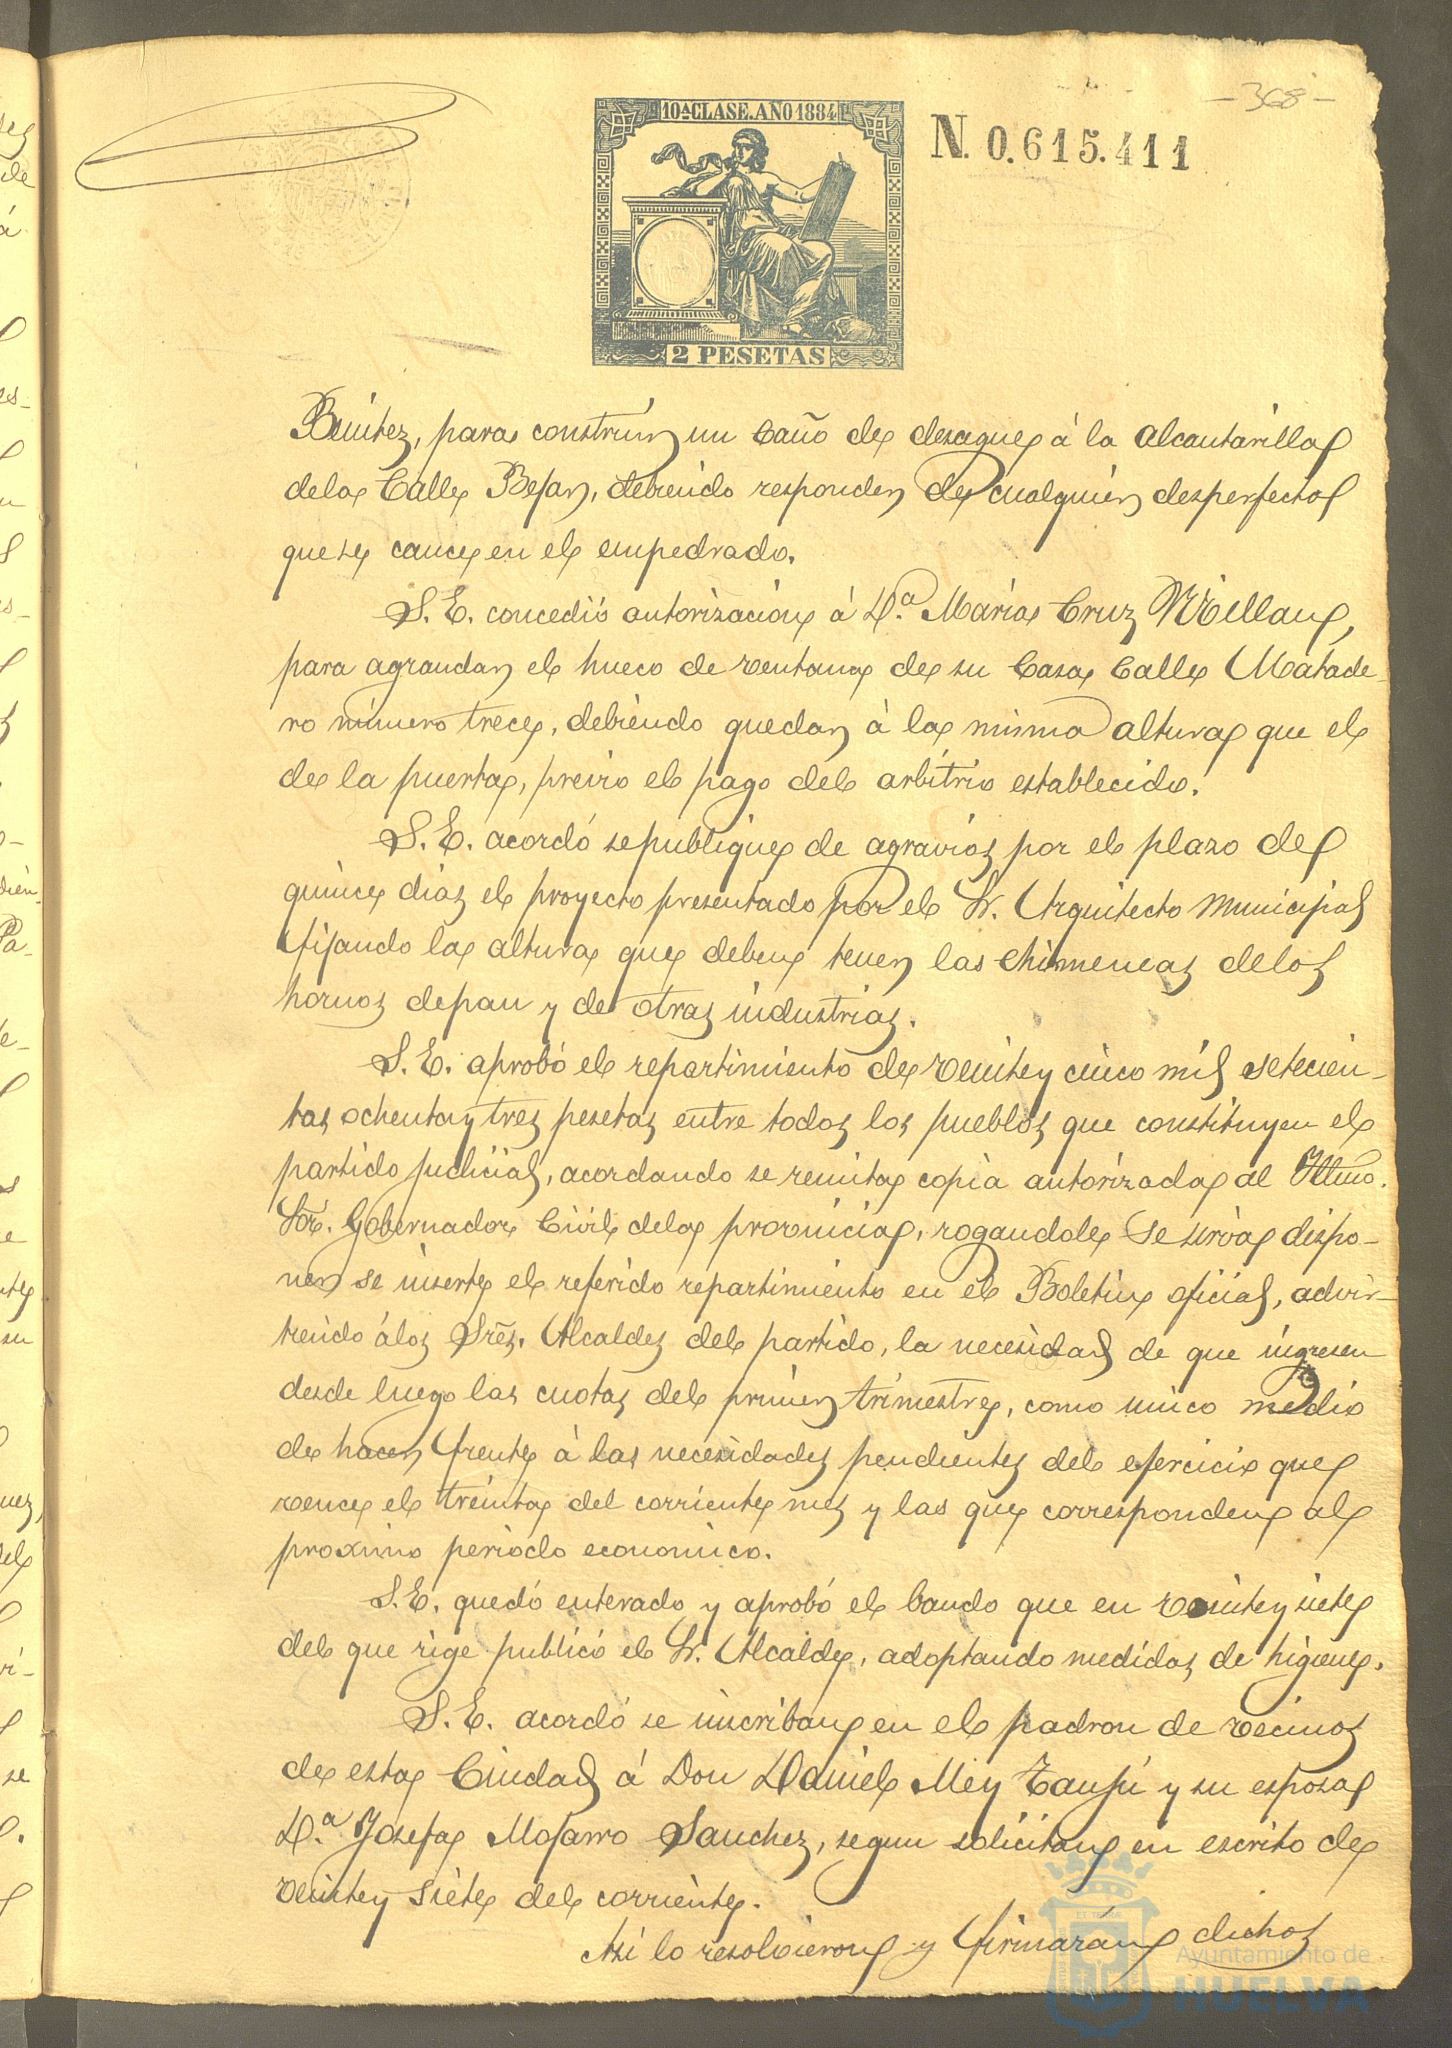 -368-
10ª CLASE. AÑO 1884
N. 0.615.411
2 PESETAS
Benitez, para construir un caño de desague á la alcantarilla
dela Calle Bejar, debiendo responder de cualquier desperfecto
que se cauce en el empedrado.
S. E. concedió autorización á D.ª Maria Cruz Millan,
para agrandar el hueco de ventana de su Casa Calle Matade-
ro número trece, debiendo quedar á la misma altura que el
de la puerta, previo el pago del arbitrio establecido.
S. E. acordó se publique de agravios por el plazo de
quince dias el proyecto presentado por el Sr. Arquitecto Municipal
fijando la altura que deben tener las chimeneas delos
hornos depan y de otras industrias.
S. E. aprobó el repartimiento de veinte y cinco mil setecien-
tas ochenta y tres pesetas entre todos los pueblos que constituyen el
partido judicial, acordando se remita copia autorizada al Iltmo.
Sor. Gobernador Civil dela provincia, rogandole se sirva dispo-
ner se inserte el referido repartimiento en el Boletin oficial, advir-
tiendo álos Sres. Alcaldes del partido, la necesidad de que ingresen
desde luego las cuotas del primer trimestre, como unico medio
de hacer frente á las necesidades pendientes del ejercicio que
vence el treinta del corriente mes y las que corresponden al
proximo periodo economico.
S. E. quedó enterado y aprobó el bando que en veinte y siete
del que rige publicó el Sr. Alcalde, adoptando medidas de higiene.
S. E. acordó se inscriban en el padron de vecinos
de esta Ciudad á Don Daniel Mey y su esposa
D.ª Josefa Mojarro Sanchez, segun solicitan en escrito de
veinte y siete del corriente.
Asi lo resolvieron y firmarán dichos
Ayuntamiento de
HUELVA